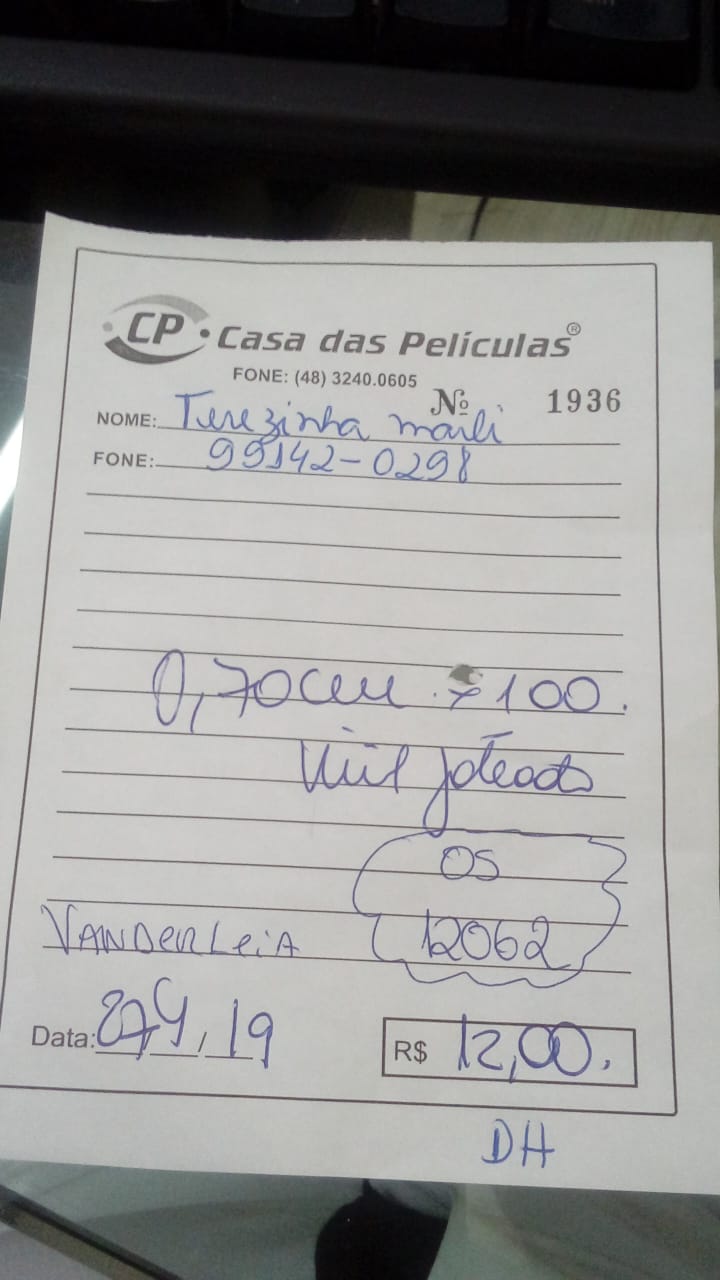 CP · Casa das Películas ®
FONE: (48) 3240.0605
Nº 1936
NOME: Terezinha marli
FONE: 99142-0298
0,70cm x 100.
jateado
OS
12062
VANDERLEIA
Data: 27/9/19
R$ 12,00.
DH